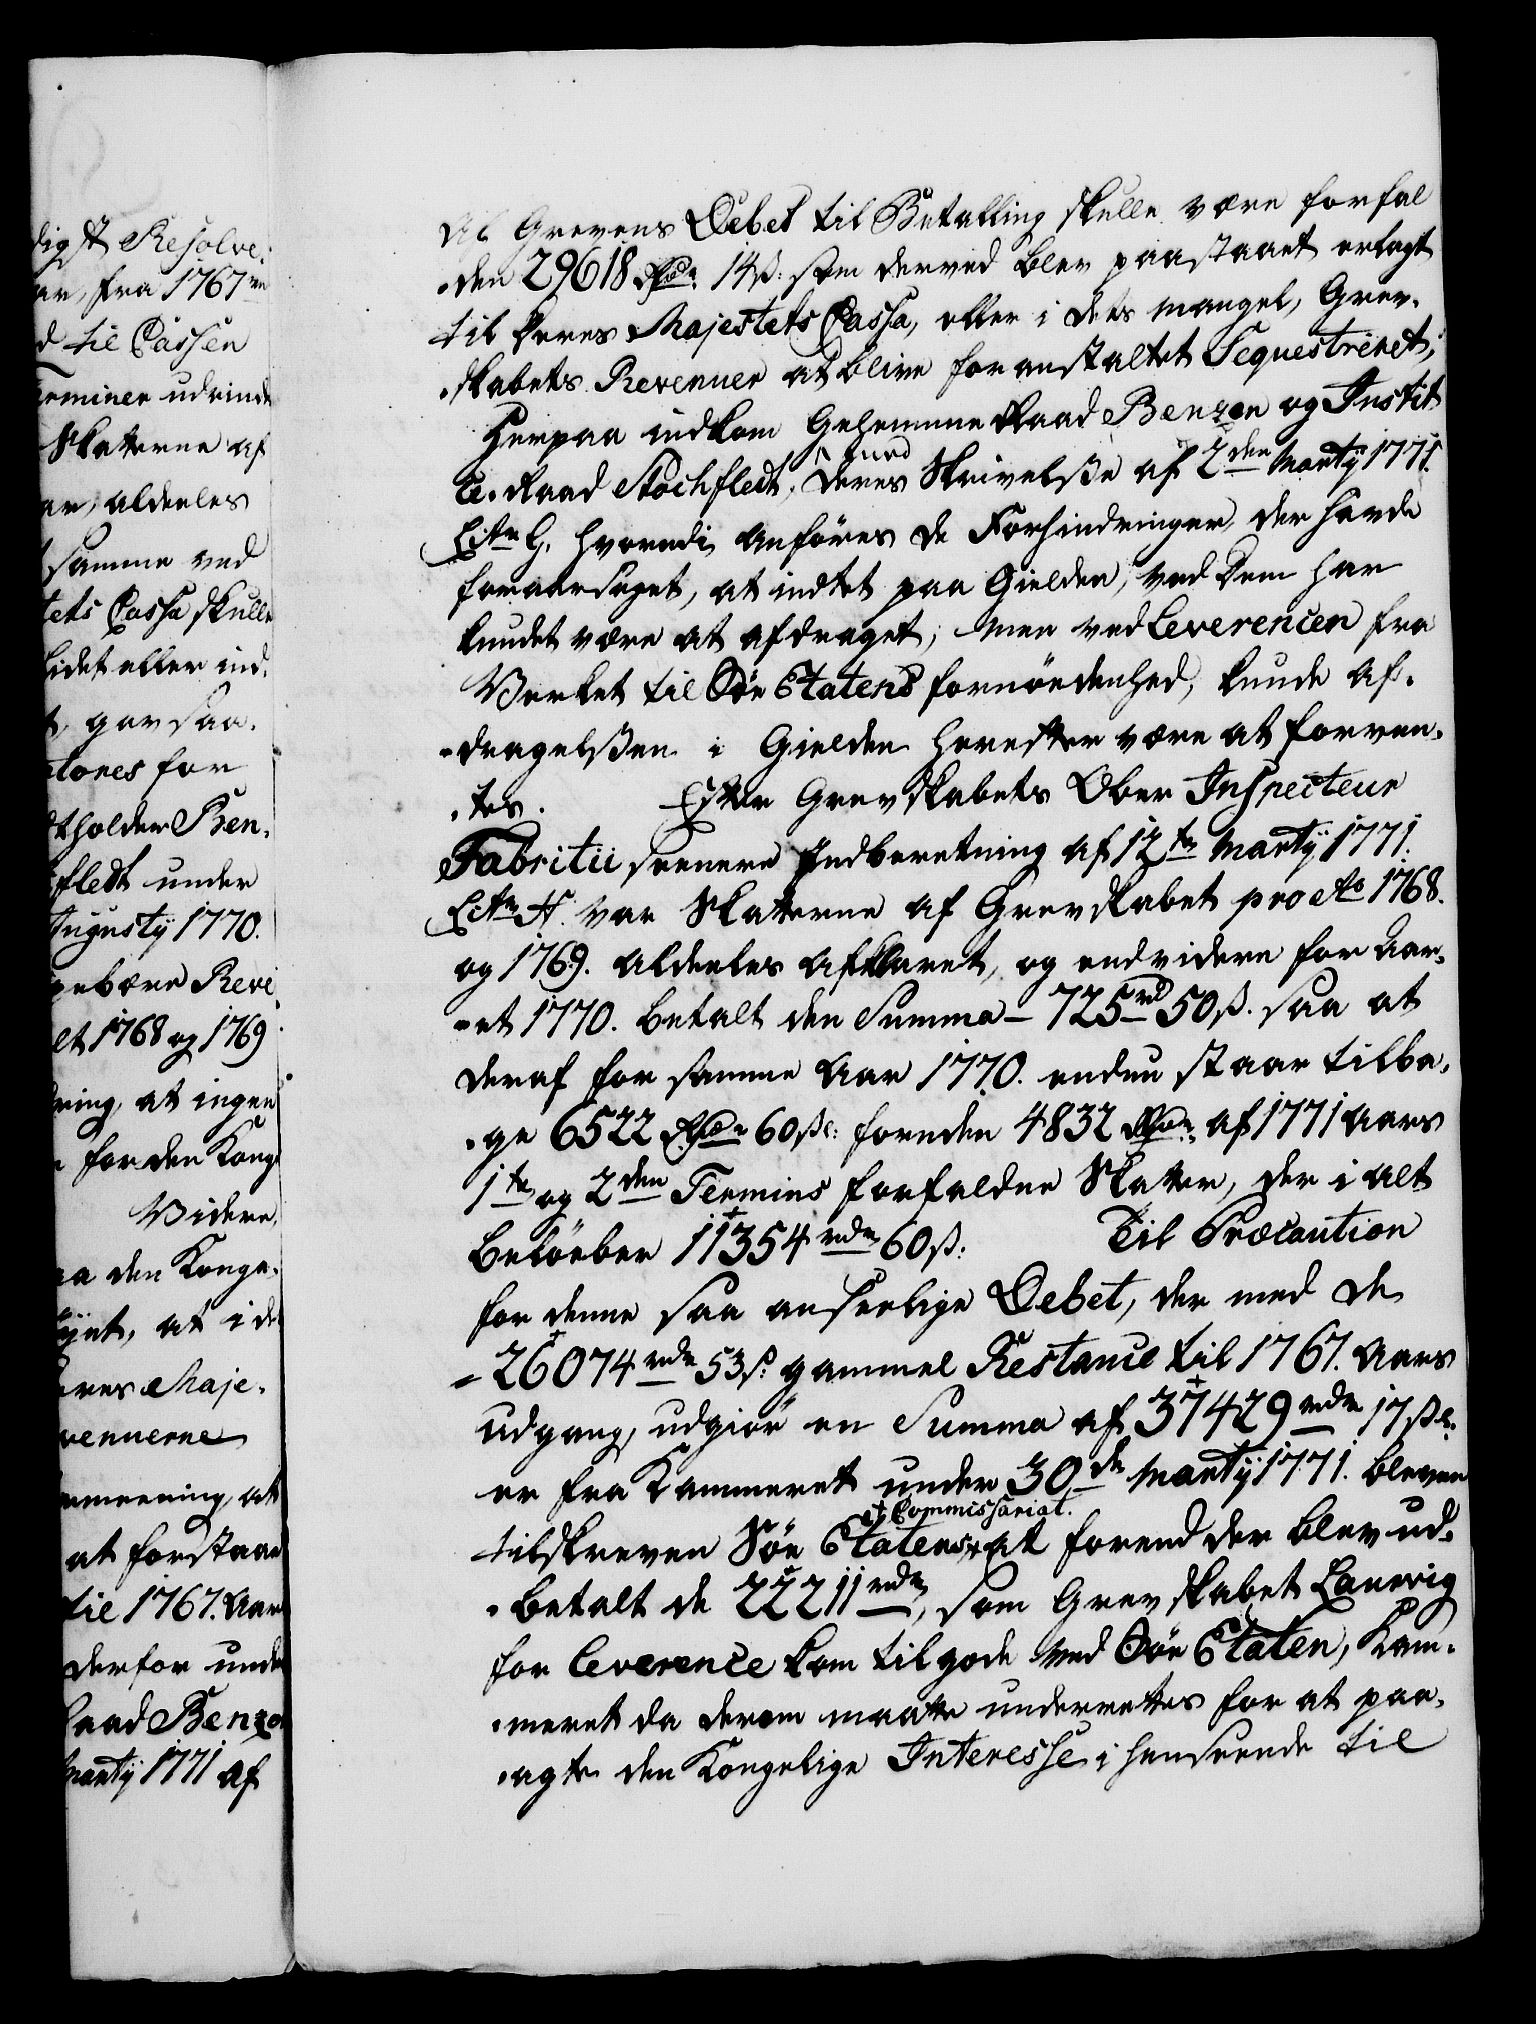 digst Resolve.
ar, fra 1767 rn
d til Cassen
erminer udrinde
Skatterne af
ar, aldeeles
samme ved
tets Cassa skulle
lidet eller ind.
t, gav saa.
tores for
tholder Ben.
fledt under
Augusty 1770.
gebære Reve.
elt 1768 og 1769.
ring, at ingen
for den Kong
Videre,
aa den Konge.
at i de
eres Maje.
venuerne
meening, at
at forstaae
til 1767. Aar
derfor unde
Raad Benzo
Marty 1771 af
Af Grevens Debet til Betalling skulle være forfal
den 29618 Rdr. 14 ß: som derved blev paastaaet erlagt
til Deres Majestets Cassa, eller i dets mangel, Grev.
skabets Revenuer at blive foranstaltet Sequestreret,
Herpaa indkom Geheimme Raad Benzon og Justit
ce. Raad Stochfledt, med Deres Skrivelße af 2den Marty 1771.
Litr G, hvorudi anføres de Forhindringer, der havde
foraarsaget, at indtet paa Gielden, ved Dem har
kundet være at afdraget; men ved Leverencen fra
Verket til Søe Etatens fornöedenhed, kunde af.
dragelßen i Gielden herefter være at forven.
tes. Efter Grevskabets Ober Inspecteur
Fabritii seenere Indberetning af 12te Marty 1771.
Litr H. var Skatterne af Grevskabet pro Ao 1768.
og 1769. aldeeles afklaret, og endvidere for Aar.
et 1770. betalt den Summa - 725 rd 50 ß. saa at
deraf for samme Aar 1770. endnu staar tilba.
ge 6522 Rdr 60 ßr: foruden 4832 Rdr: af 1771 Aars
1te og 2den Termins forfaldne Skatter, der i alt
beløeber 11354 rdr 60 ß: Til Præcaution
for denne saa anseelige Debet, der med de
26074 rdr 53 ß: gammel Restance til 1767. Aars
udgang, udgiør en Summa af 37429 rdr 17 ßr.
er fra Kammeret under 30de Marty 1771. bleven
tilskreven Søe Etatens + Commissariat. at forend der blev ud.
betalt de 22211 rdr, som Grevskabet Laurvig
for leverence kom til gode ved Søe Etaten, Kam.
meret da derom maatte underrettes for at paa.
agte den Kongelige Interesse i henseende til